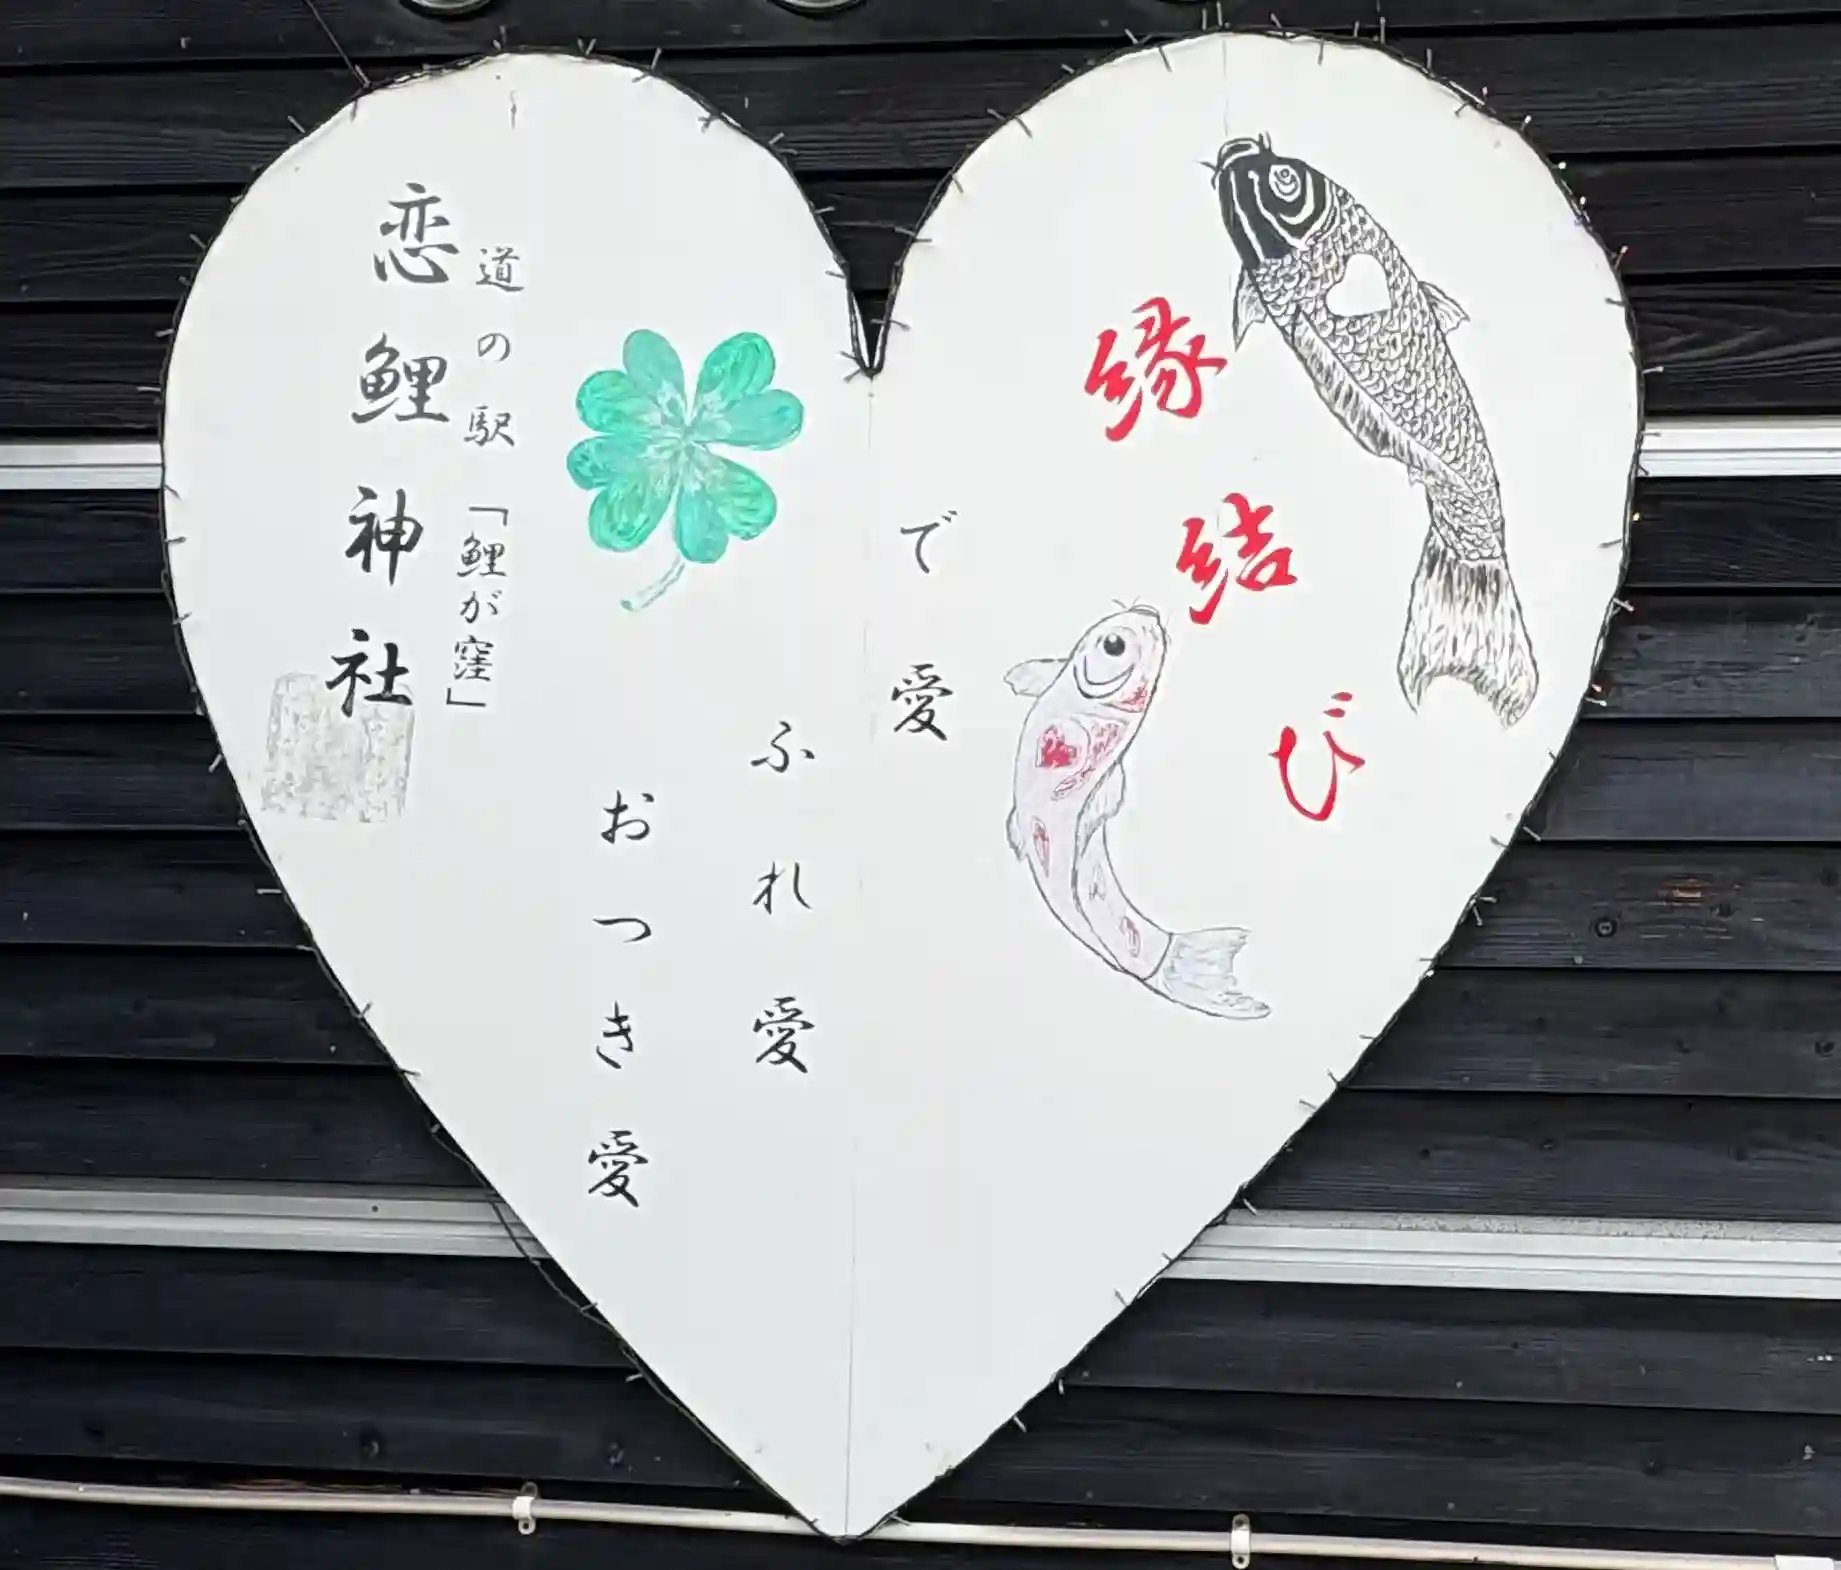 縁結び
で愛
ふれ愛
おつき愛
道の駅「鯉が窪」
恋鯉神社